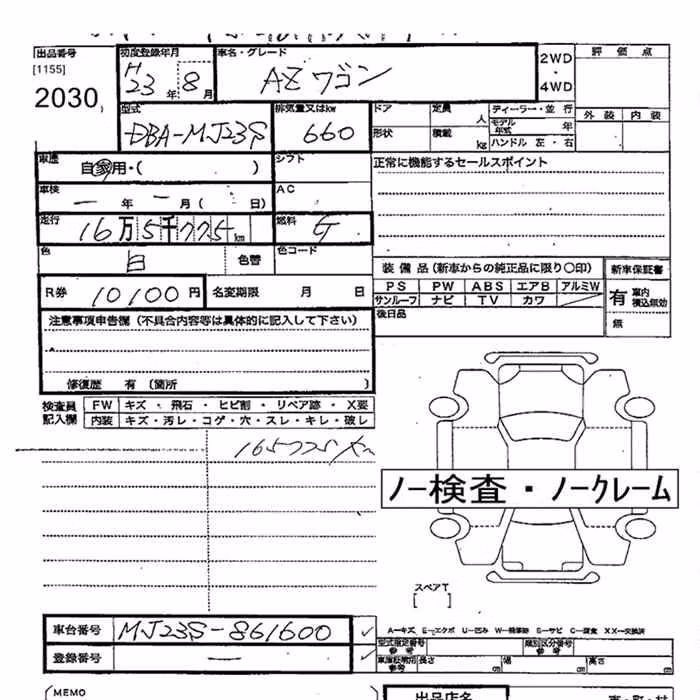 出品番号
[1155]
2030
初度登録年月
H23年 8月
車名・グレード
AZワゴン
2WD
・
4WD
評価点
外装 内装
型式
DBA-MJ23S
排気量又はkw
660
ドア
定員 人
ディーラー・並行
モデル年式 年
形状
積載 kg
ハンドル 左・右
車歴
自家用・( )
シフト
正常に機能するセールスポイント
車検
ー年 ー月( 日)
AC
走行
16万5千775km
燃料
G
色
白
色替
色コード
装備品(新車からの純正品に限り○印)
新車保証書
PS PW ABS エアB アルミW
サンルーフ ナビ TV カワ
有 車内積込無効
無
後日品
R券
10100円
名変期限 月 日
注意事項申告欄(不具合内容等は具体的に記入して下さい)
修復歴 有〔箇所 〕
検査員記入欄
FW キズ・飛石・ヒビ割・リペア跡・X要
内装 キズ・汚レ・コゲ・穴・スレ・キレ・破レ
165775km
ノー検査・ノークレーム
スペアT
[ ]
車台番号
MJ23S-861600
✓
登録番号
ー
✓
A―キズ E―エクボ U―凹み W―補修跡 S―サビ C―腐食 XX―交換済
型式指定番号 参考
類別区分番号 参考
車庫証明用 参考
長さ cm
幅 cm
高さ cm
MEMO
出品店名